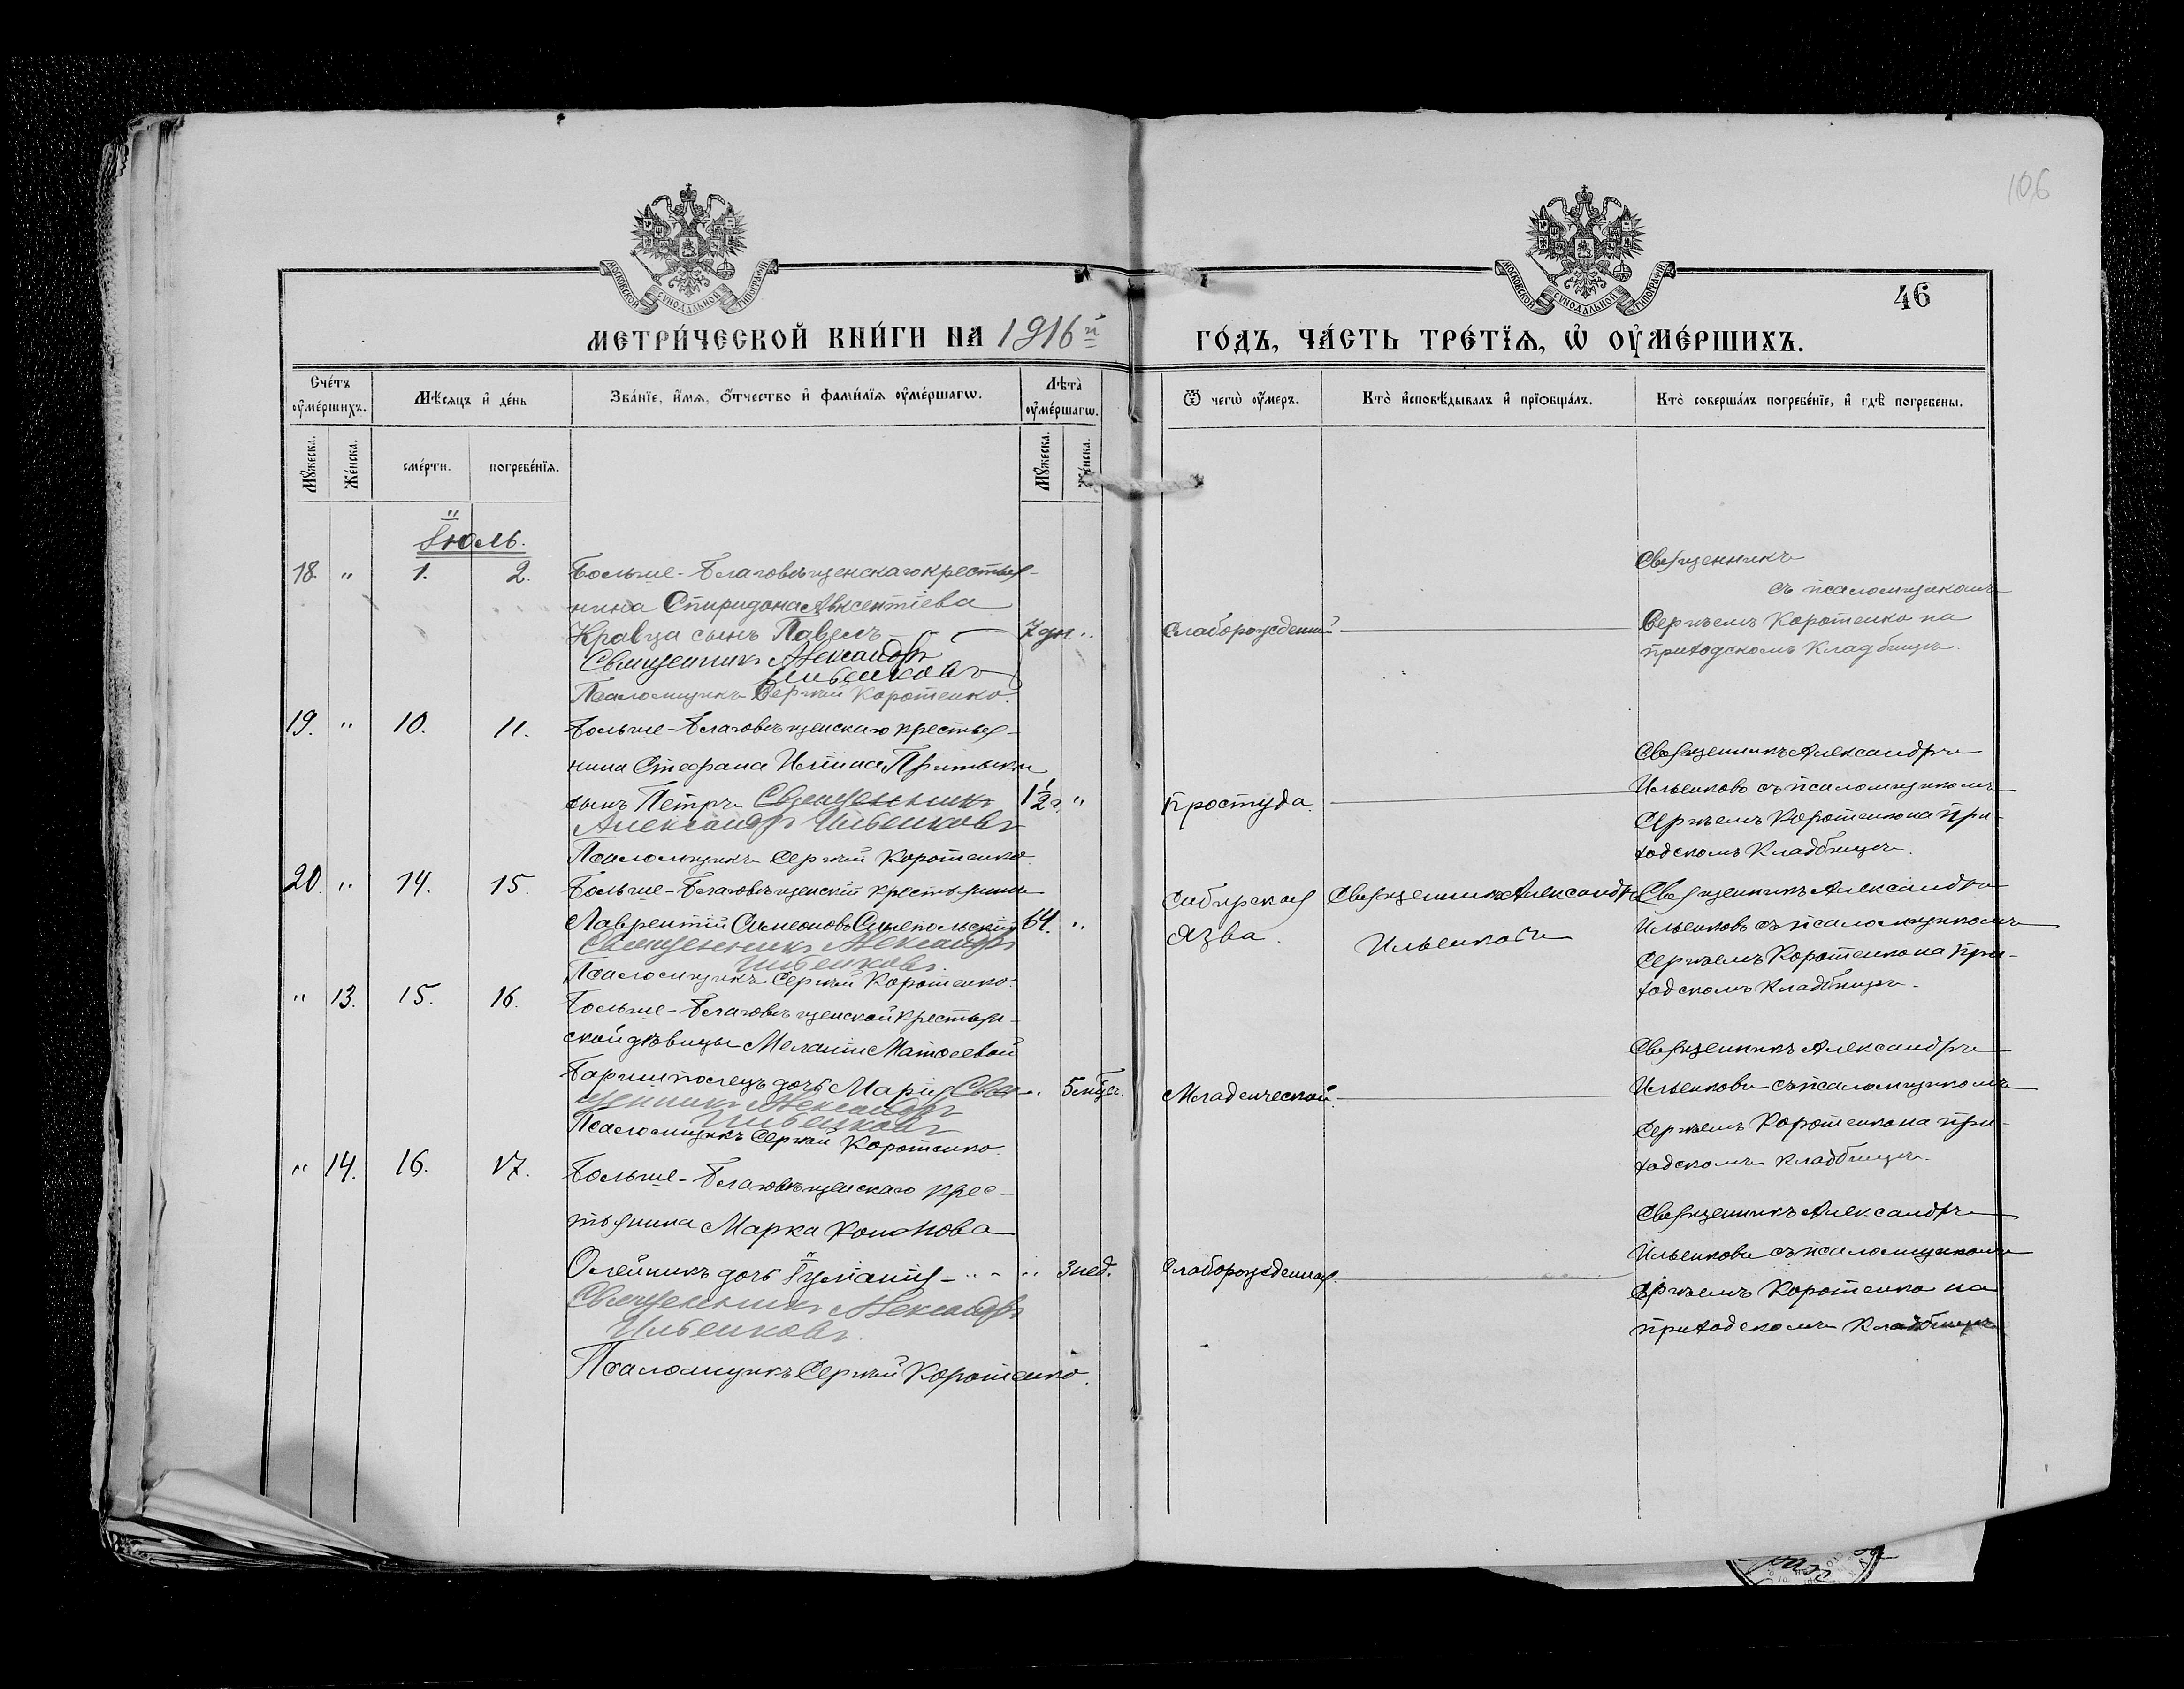 106
МОСКОВСКОЙ СѴНОДАЛЬНОЙ ТИПОГРАФІИ
МОСКОВСКОЙ СѴНОДАЛЬНОЙ ТИПОГРАФІИ
46
МЕТРИ́ЧЕСКОЙ КНИ́ГИ НА 1916й
ГО́ДЪ, ЧА́СТЬ ТРЕ́ТЇѦ, Ѡ҆ ОУ҆МЕ́РШИХЪ.
Сче́тъ оу҆ме́ршихъ.
Мѣ́сяцъ и҆ де́нь
Зва́нїе, и҆́мѧ, ѻ҆́тчество и҆ фами́лїѧ оу҆ме́ршагѡ.
Лѣта̀ оу҆ме́ршагѡ.
Ѿ чегѡ̀ оу҆́меръ.
Кто̀ и҆сповѣ́дывалъ и҆ прїѻбща́лъ.
Кто̀ соверша́лъ погребе́нїе, и҆ гдѣ̀ погребены.
Мꙋ́жеска. Же́нска. сме́рти. погребе́нїѧ. Мꙋ́жеска. Же́нска.
Іюль.
18. " 1. 2. Больше-Благовѣщенскаго крестья-
нина Спиридона Авксентіева
Кравца сынъ Павелъ 7 дн. "
Священникъ Александръ
Ильенковъ
Псаломщикъ Сергій Коротенко.
Слаборожденный
Священникъ
съ псаломщикомъ
Сергѣемъ Коротенко на
приходскомъ кладбищѣ.
19. " 10. 11. Больше-Благовѣщенскаго крестья-
нина Стефана Иліина
сынъ Петръ Священникъ 1½ г. "
Александръ Ильенковъ
Псаломщикъ Сергій Коротенко
Простуда.
Священникъ Александръ
Ильенковъ съ псаломщикомъ
Сергѣемъ Коротенко на при-
ходскомъ кладбищѣ.
20. " 14. 15. Больше-Благовѣщенскій крестьянинъ
Лаврентій Симеоновъ 64. "
Священникъ Александръ
Ильенковъ.
Псаломщикъ Сергій Коротенко.
Сибирская
язва.
Священникъ Александръ
Ильенковъ
Священникъ Александръ
Ильенковъ съ псаломщикомъ
Сергѣемъ Коротенко на при-
ходскомъ кладбищѣ.
" 13. 15. 16. Больше-Благовѣщенской крестьян-
ской дѣвицы Меланіи Матѳеевой
Баришполецъ дочь Марія Свя- " 5 мѣс.
щенникъ Александръ
Ильенковъ
Псаломщикъ Сергій Коротенко.
Младенческой.
Священникъ Александръ
Ильенковъ съ псаломщикомъ
Сергѣемъ Коротенко на при-
ходскомъ кладбищѣ.
" 14. 16. 17. Больше-Благовѣщенскаго крес-
тьянина Марка Кононова
Олейникъ дочь Іуліанія " 3 нед.
Священникъ Александръ
Ильенковъ.
Псаломщикъ Сергій Коротенко.
Слаборожденная.
Священникъ Александръ
Ильенковъ съ псаломщикомъ
Сергѣемъ Коротенко на
приходскомъ кладбищѣ